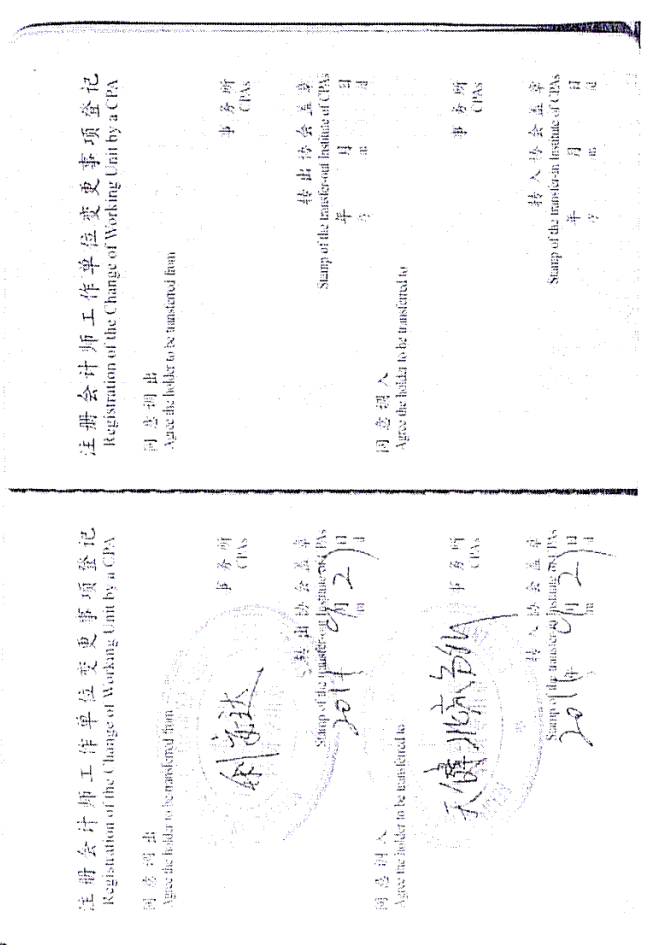 注册会计师工作单位变更事项登记
Registration of the Change of Working Unit by a CPA
同意调出
Agree the holder to be transferred from
事务所
CPAs
转出协会盖章
Stamp of the transfer-out Institute of CPAs
年 月 日
y m d
同意调入
Agree the holder to be transferred to
事务所
CPAs
转入协会盖章
Stamp of the transfer-in Institute of CPAs
年 月 日
y m d
注册会计师工作单位变更事项登记
Registration of the Change of Working Unit by a CPA
同意调出
Agree the holder to be transferred from
事务所
CPAs
转出协会盖章
Stamp of the transfer-out Institute of CPAs
月 日
m d
同意调入
Agree the holder to be transferred to
天健北京分所
事务所
CPAs
转入协会盖章
Stamp of the transfer-in Institute of CPAs
年 月 日
m d